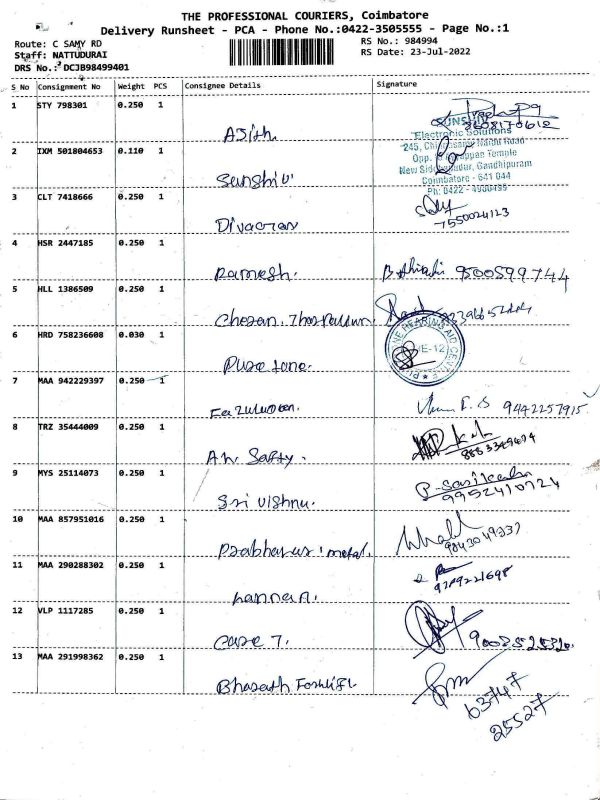 THE PROFESSIONAL COURIERS, Coimbatore
Delivery Runsheet - PCA - Phone No.:0422-3505555 - Page No.:1
Route: C SAMY RD RS No.: 984994
Staff: NATTUDURAI RS Date: 23-Jul-2022
DRS No.: DCJB98499401
S No Consignment No Weight PCS Consignee Details Signature
1 STY 798301 0.250 1
Asith
9608170612
SUNSHIV
Electronic Solutions
2 IXM 501804653 0.110 1
Sunshiv
245,
Opp. Temple
Gandhipuram
Coimbatore - 641 044
Ph: 0422 -
3 CLT 7418666 0.250 1
7550024123
4 HSR 2447185 0.250 1
Ramesh. 9500599744
5 HLL 1386509 0.250 1
Chozan.
6 HRD 758236608 0.030 1
Pure tone.
HEARING AID CENTRE
7 MAA 942229397 0.250 1
9442257915
8 TRZ 35444009 0.250 1
An Safty.
9 MYS 25114073 0.250 1
Sri Vishnu. 9952410724
10 MAA 857951016 0.250 1
metal.
11 MAA 290288302 0.250 1
9789221698
12 VLP 1117285 0.250 1
Care 7.
13 MAA 291998362 0.250 1
Bharath Forklift
63747
25527